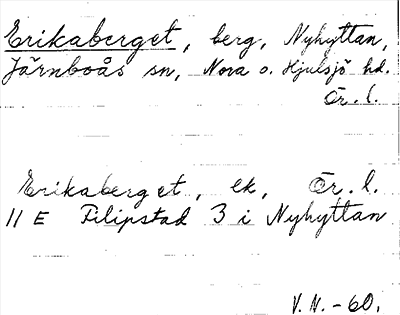 Erikaberget, berg, Nyhyttan,
Järnboås sn, Nora o. Hjulsjö hd.
Ör. l.
Erikaberget, ek, Ör. l.
11 E Filipstad 3 i Nyhyttan
V. N. - 60.